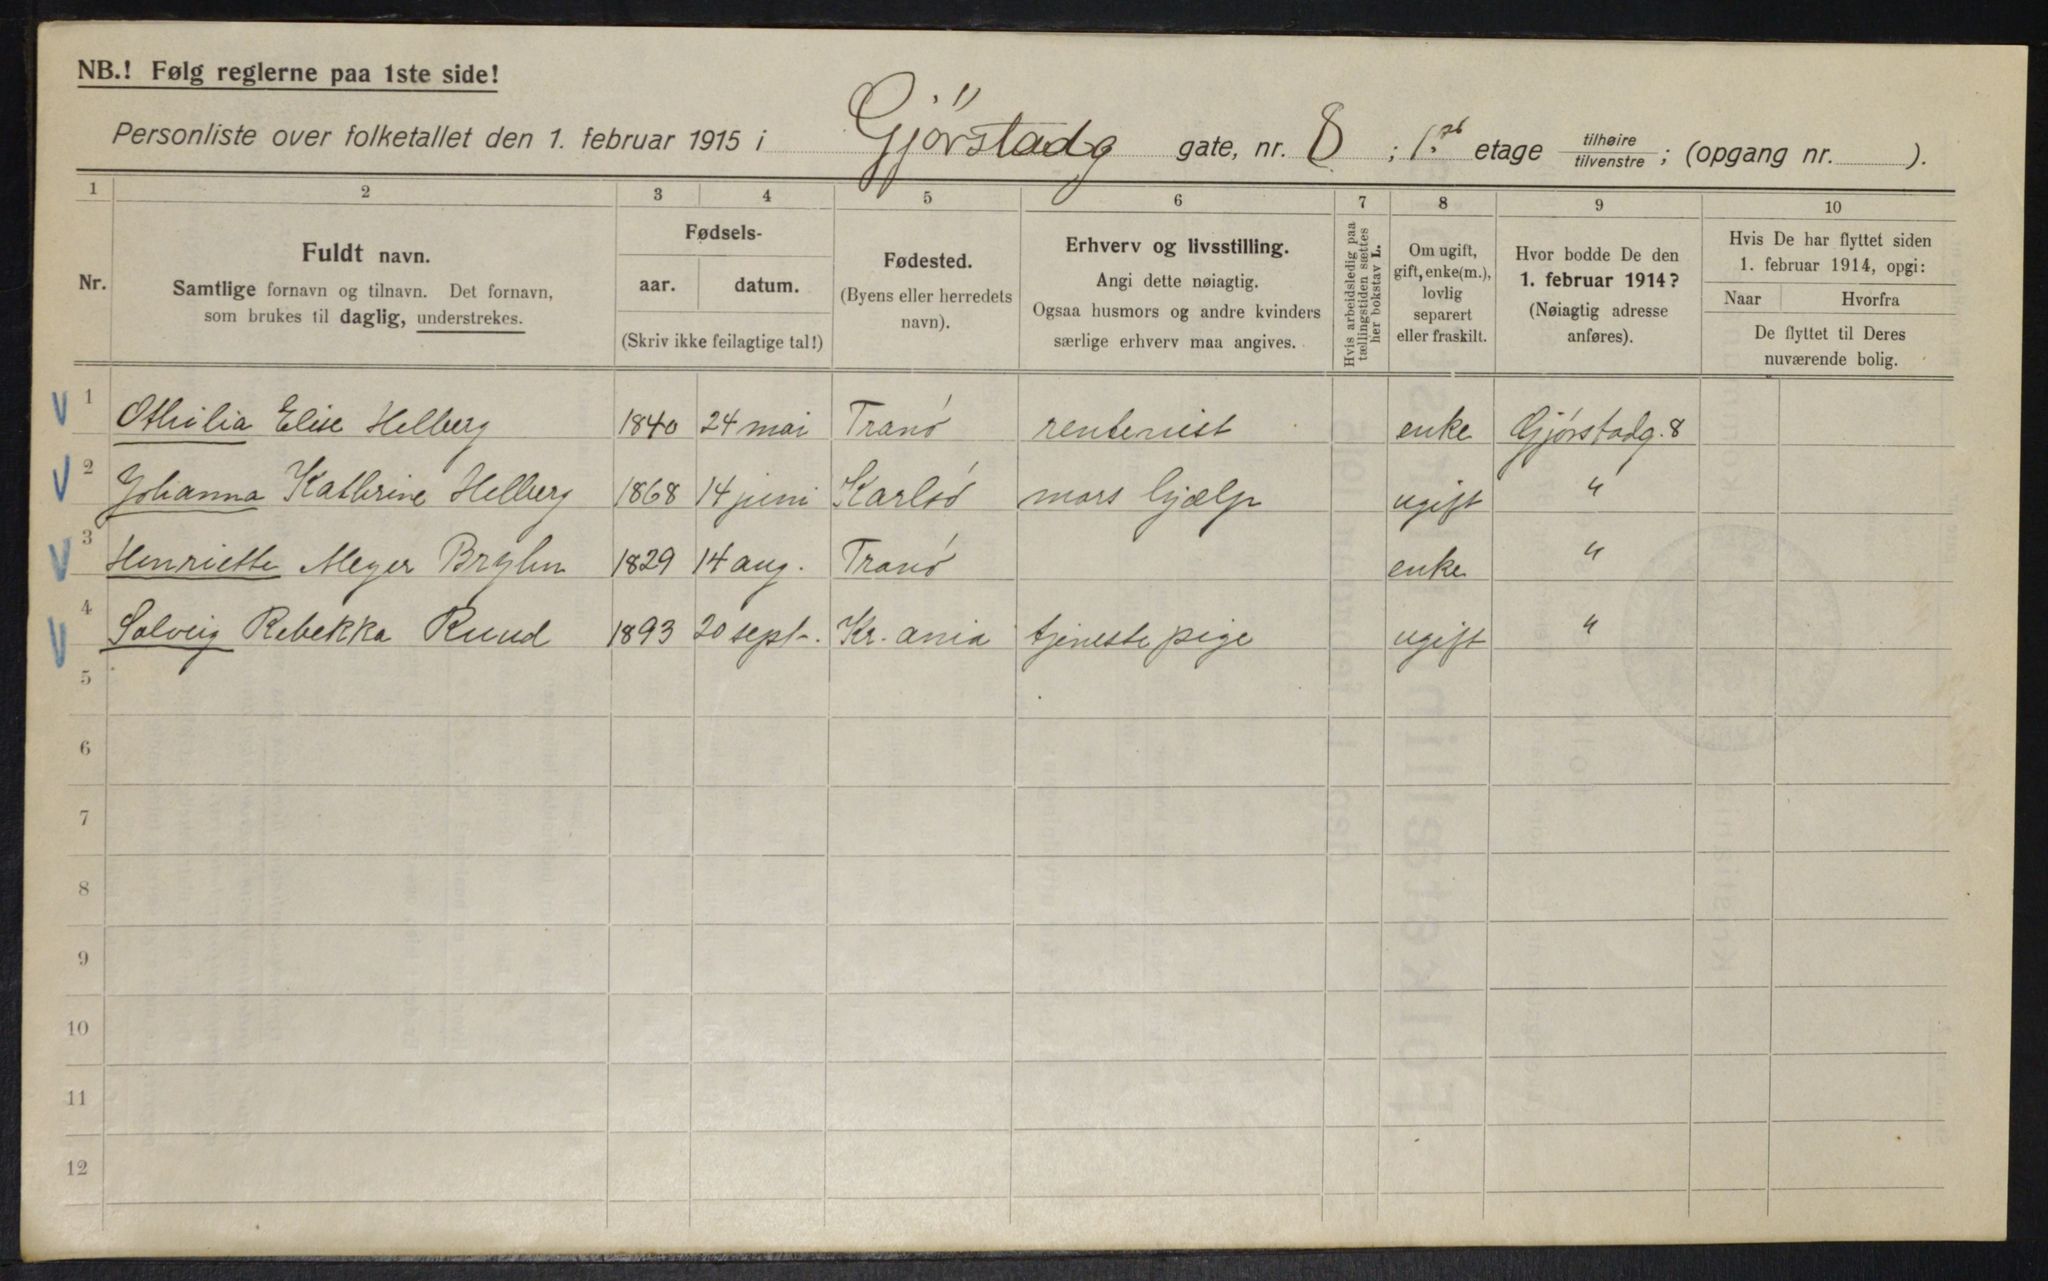 NB.! Følg reglerne paa 1ste side!
Personliste over folketallet den 1. februar 1915 i Gjörstadg gate, nr. 8 ; 1. etage tilhøire / tilvenstre ; (opgang nr. ).
1 2 3 4 5 6 7 8 9 10
Nr.
Fuldt navn.
Samtlige fornavn og tilnavn. Det fornavn,
som brukes til daglig, understrekes.
Fødsels-
aar. datum.
(Skriv ikke feilagtige tal!)
Fødested.
(Byens eller herredets
navn).
Erhverv og livsstilling.
Angi dette nøiagtig.
Ogsaa husmors og andre kvinders
særlige erhverv maa angives.
Hvis arbeidsledig paa
tællingstiden sættes
her bokstav L.
Om ugift,
gift, enke(m.),
lovlig
separert
eller fraskilt.
Hvor bodde De den
1. februar 1914?
(Nøiagtig adresse
anføres).
Hvis De har flyttet siden
1. februar 1914, opgi:
Naar Hvorfra
De flyttet til Deres
nuværende bolig.
1 Othilia Elise Helberg 1840 24 mai Tranö rentenist enke Gjørstadg. 8
2 Johanna Kathrine Helberg 1868 14 juni Karlsö mors hjælp ugift "
3 Henriette Meyer 1829 14 aug. Tranö enke "
4 Solveig Rebekka Ruud 1893 20 sept. Kr. ania tjenestepige ugift "
5
6
7
8
9
10
11
12